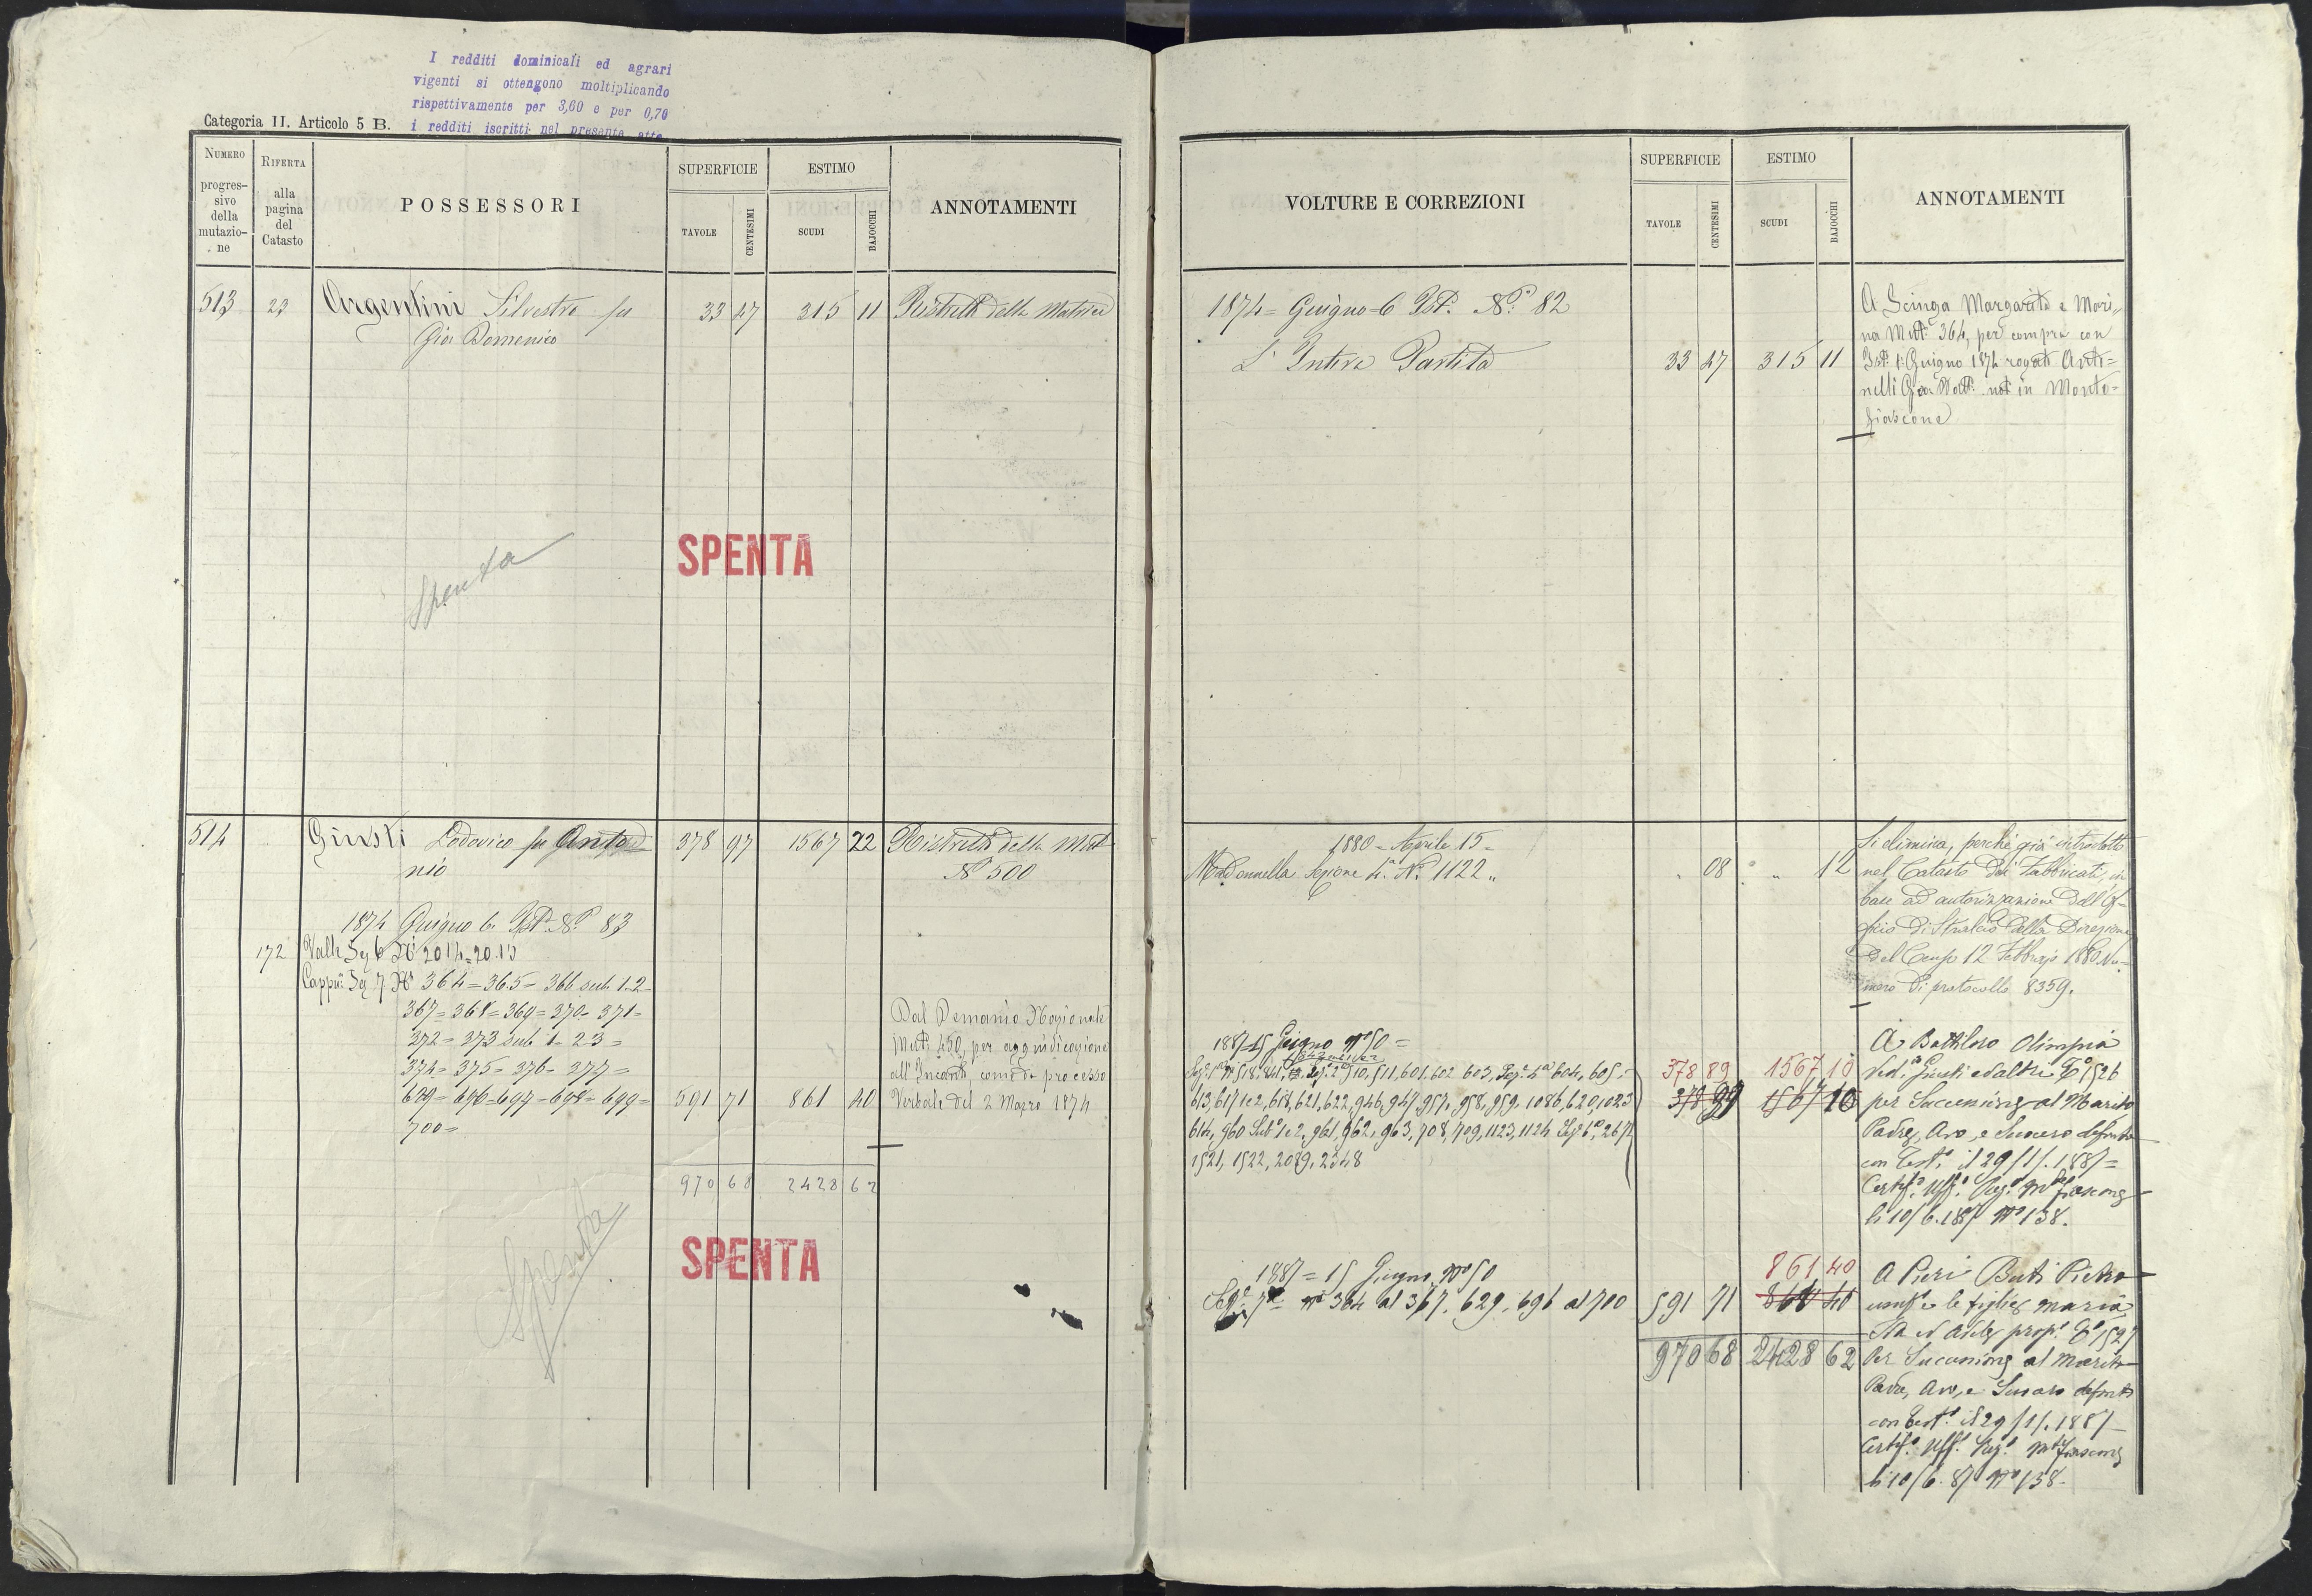 I redditi dominicali ed agrari
vigenti si ottengono moltiplicando
rispettivamente per 3,60 e per 0,70
i redditi iscritti nel presente atto
Categoria II. Articolo 5 B.
NUMERO progressivo della mutazione
RIFERTA alla pagina del Catasto
POSSESSORI
SUPERFICIE
TAVOLE
CENTESIMI
ESTIMO
SCUDI
BAJOCCHI
ANNOTAMENTI
513 23 Argentini Silvestro fu 33 47 315 11 Ristretto della Matrice
Gio: Domenico
Spenta
SPENTA
514 Giusti Lodovico fu Anto= 378 97 1567 22 Ristretto della Mat
nio Nº 500
1874 Giugno 6. Ist. Nº 83
172 Valle Sez 6 Ni 2014=2015
Cappni Sez 7 Ni 364=365=366 sub 1-2
367=368=369=370=371=
372=373 sub 1-2 3=
374=375=376=377=
629=696=697=698=699= 591 71 861 40
700=
Dal Demanio Nazionale
Mut. 450, per aggiudicazione
all'Incanto, come da processo
Verbale del 2 Marzo 1874
970 68 2428 62
Spenta
SPENTA
VOLTURE E CORREZIONI
SUPERFICIE
TAVOLE
CENTESIMI
ESTIMO
SCUDI
BAJOCCHI
ANNOTAMENTI
1874= Giugno 6 Ist. Nº 82
L'Intera Partita 33 47 315 11
A Scinga Margarita e Mari=
na Mut. 364, per compra con
Ist. 1 Giugno 1874 rogato Anti=
nelli Gio: Batt. not in Monte=
fiascone
1880 = Aprile 15 =
Madonnella Sezione 4ª Nº 1122 " 08 " 12
Si elimina, perchè già introdotto
nel Catasto dei Fabbricati, in
base ad autorizzazione dell'Uf=
ficio di Stralcio della Direzione
del Censo 12 Febbrajo 1880 Nu=
mero di protocollo 8359.
1887=15 Giugno Nº 50=
613, 617 1 e 2, 618, 621, 622, 946, 947, 957, 958, 959, 1086, 620, 1023
614, 960 Sub 1 e 2, 961, 962, 963, 708, 709, 1123, 1124 Sez 6ª, 2671
1521, 1522, 2089, 2348
378 89 1567 10
A Bathloro Olimpia
Ved. Giusti ed altri Tº 1526
per Successione al Marito
Padre, Avo, e Suocero defunto
con Test. il 29/1/.1887=
Certif. Uff. Reg. Mtefiascone
li 10/6.1887 Nº 138.
1887=15 Giugno Nº 50
Sez 7ª Ni 364 al 367, 629, 696 al 700 591 71
861 40
861 40
970 68 2428 62
A Pieri Buti Pietro
usuf e le figlie Maria
Ita ed Adele prop. Tº 1527
Per Successione al Marito
Padre, Avo, e Suocero defunto
con Test. il 29/1/.1887=
Certif. Uff. Reg. Mtefiascone
li 10/6.87 Nº 138.